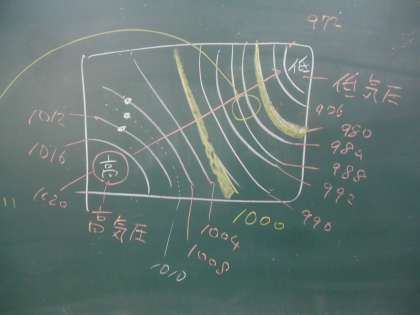 972
低
低気圧
976
980
984
988
992
996
1000
1004
1008
1010
1012
1016
1020
高
高気圧